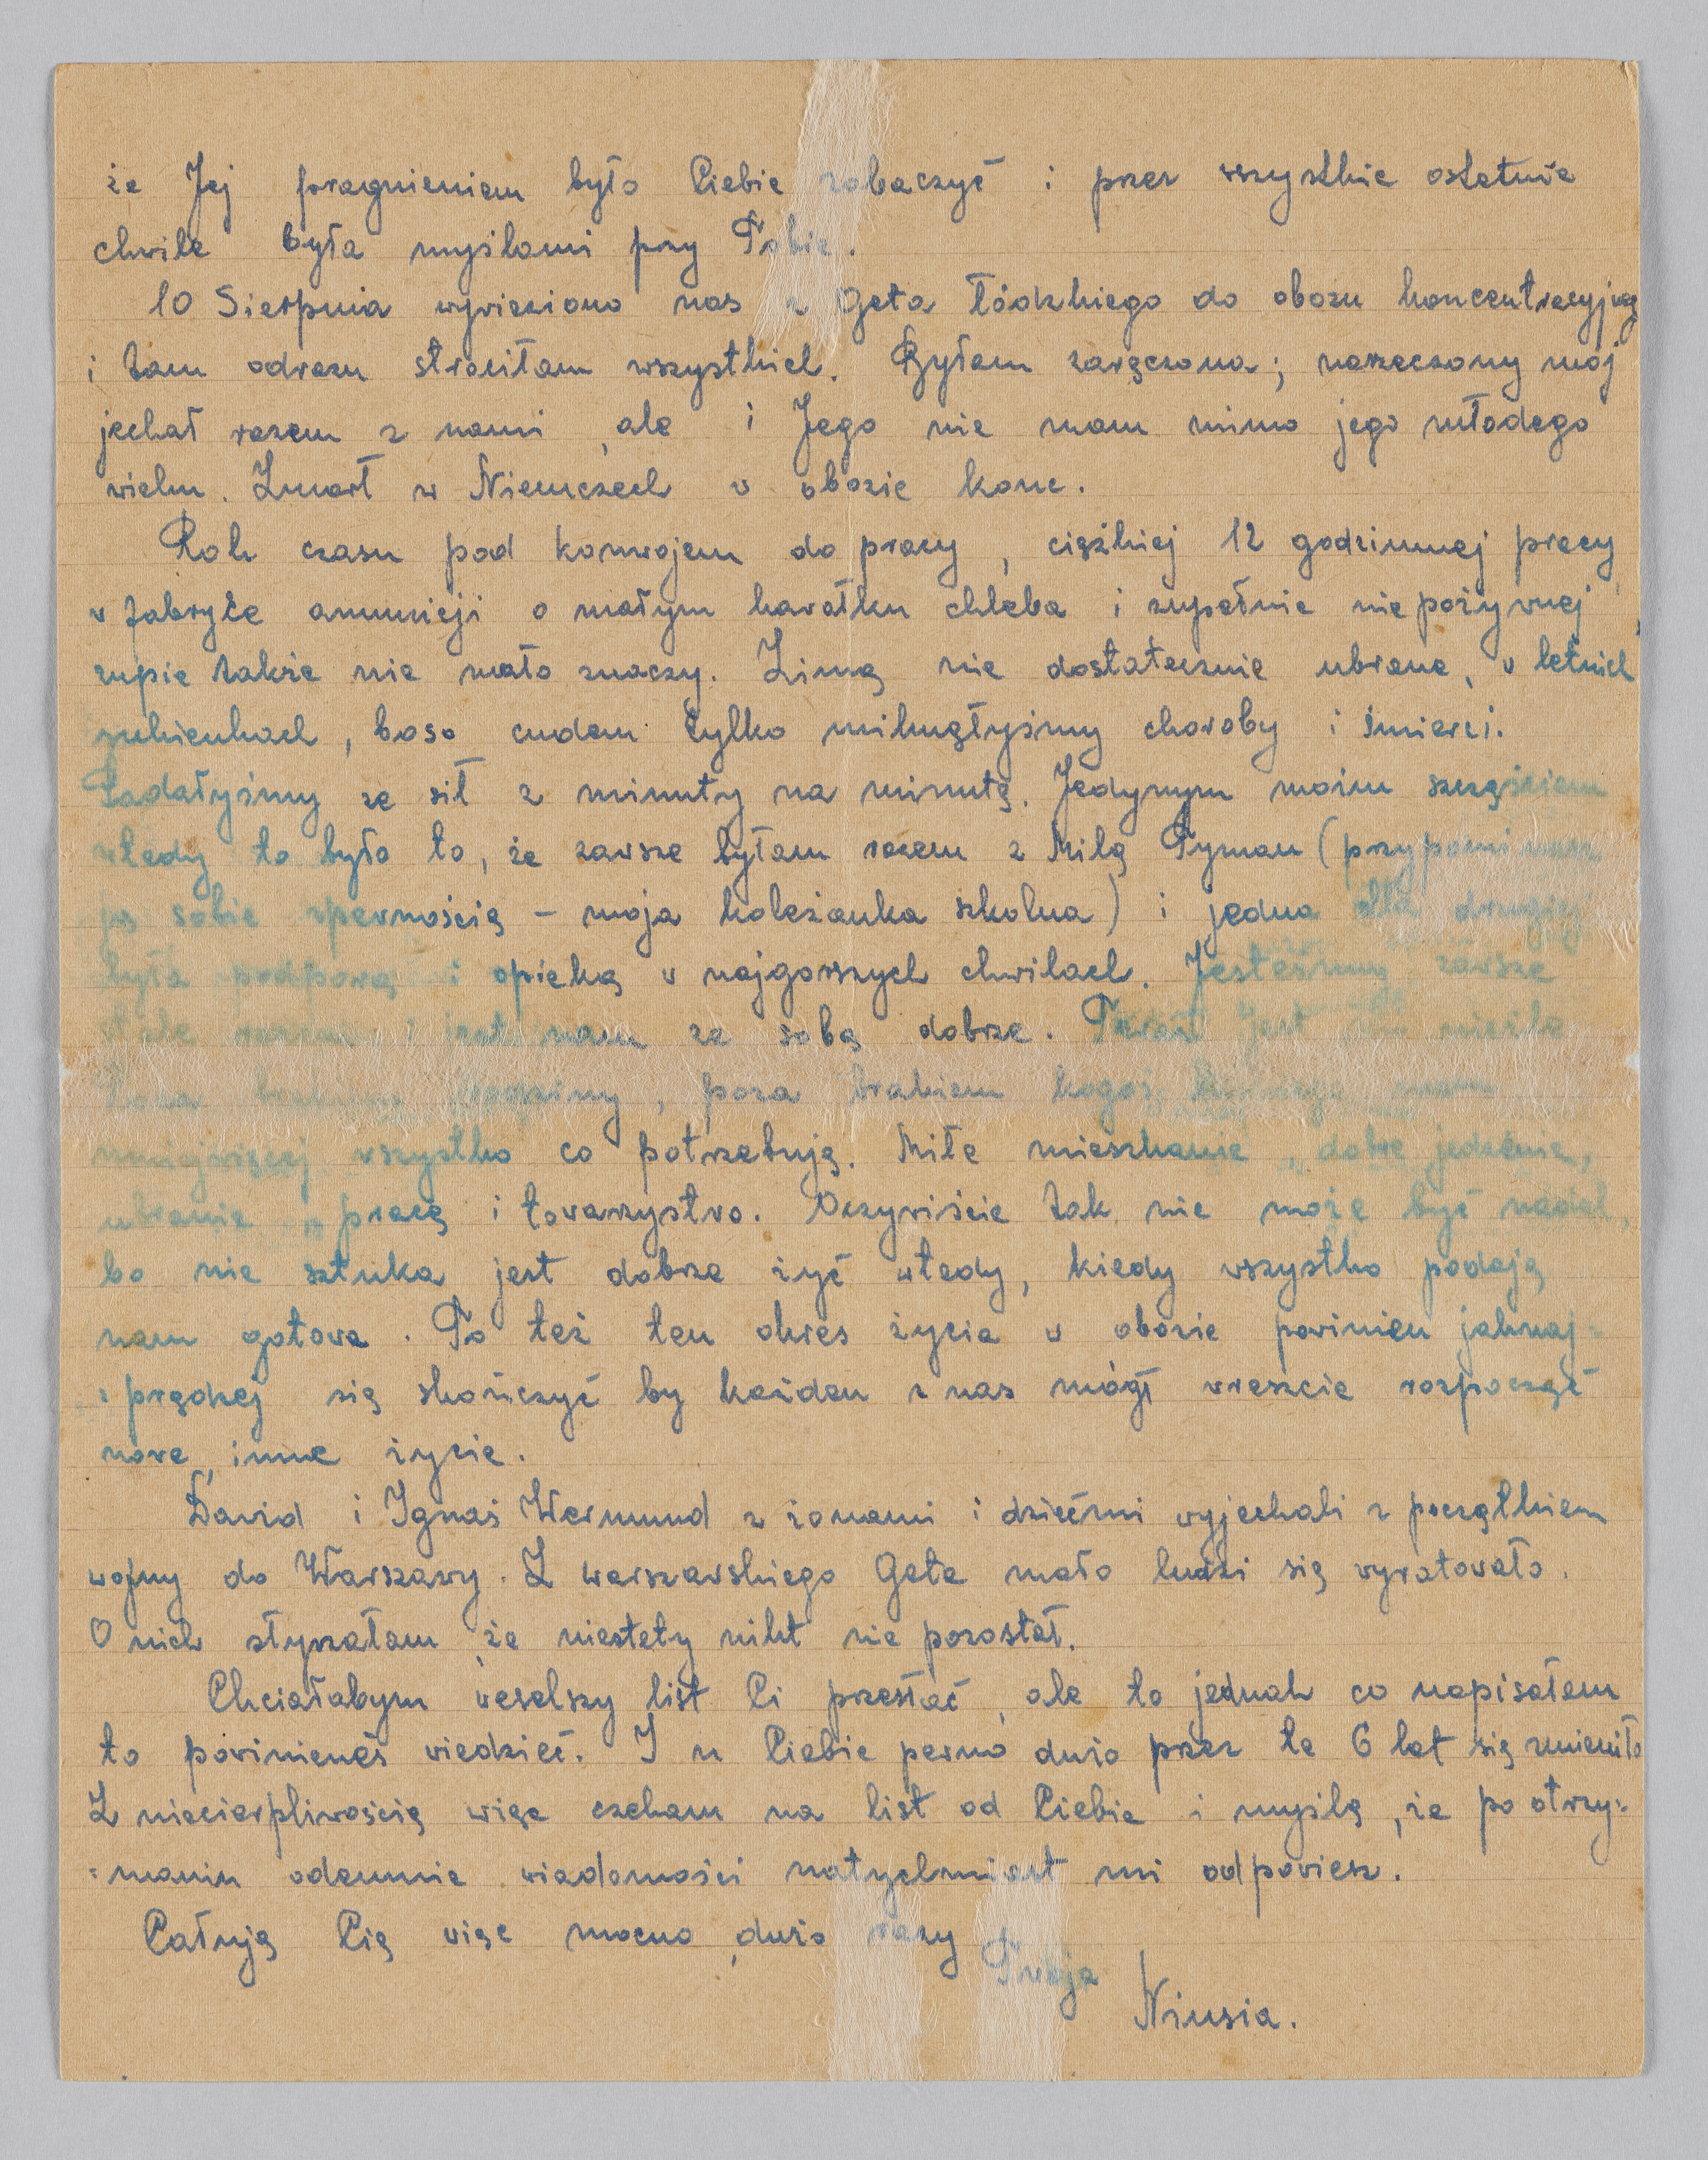 że Jej pragnieniem było Ciebie zobaczyć i przez wszystkie ostatnie
chwile była myślami przy Tobie.
10 Sierpnia wywieziono nas z Geta łódzkiego do obozu koncentracyjneg
i tam odrazu straciłam wszystkich. Byłam zaręczona; narzeczony mój
jechał razem z nami, ale i Jego nie mam mimo jego młodego
wieku. Zmarł w Niemczech w obozie konc.
Rok czasu pod konwojem do pracy, ciężkiej 12 godzinnej pracy
w fabryce amunicji o małym kawałku chleba i zupełnie niepożywnej
zupie także nie mało znaczy. Zimą nie dostatecznie ubrane, w letnich
sukienkach, boso cudem tylko uniknęłyśmy choroby i śmierci.
Padałyśmy ze sił z minuty na minutę. Jedynym moim szczęściem
wtedy to było to, że zawsze byłam razem z Milą Pyman (przypominasz
ją sobie zpewnością - moja koleżanka szkolna) i jedna dla drugiej
była podporą i opieką w najgorszych chwilach. Jesteśmy zawsze
stale razem i jest nam ze sobą dobrze. Teraz jest nieźle
Poza brakiem rodziny, poza brakiem kogoś mam
wszystko co potrzebuję. Miłe mieszkanie, dobre jedzenie,
ubranie, pracę i towarzystwo. Oczywiście tak nie może być nadal,
bo nie sztuka jest dobrze żyć wtedy, kiedy wszystko podają
nam gotowe. To też ten okres życia w obozie powinien jaknaj=
=prędzej się skończyć by każden z nas mógł wreszcie rozpocząć
nowe, inne życie.
Dawid i Ignaś Wermund z żonami i dziećmi wyjechali z początkiem
wojny do Warszawy. Z warszawskiego Geta mało ludzi się wyratowało.
O nich słyszałam, że niestety nikt nie pozostał.
Chciałabym weselszy list Ci przesłać, ale to jednak co napisałam
to powinieneś wiedzieć. I u Ciebie pewno dużo przez te 6 lat się zmieniło
Z niecierpliwością więc czekam na list od Ciebie i myślę, że po otrzy=
=maniu odemnie wiadomości natychmiast mi odpowiesz.
Całuję Cię więc mocno, dużo razy
Twoja
Niusia.